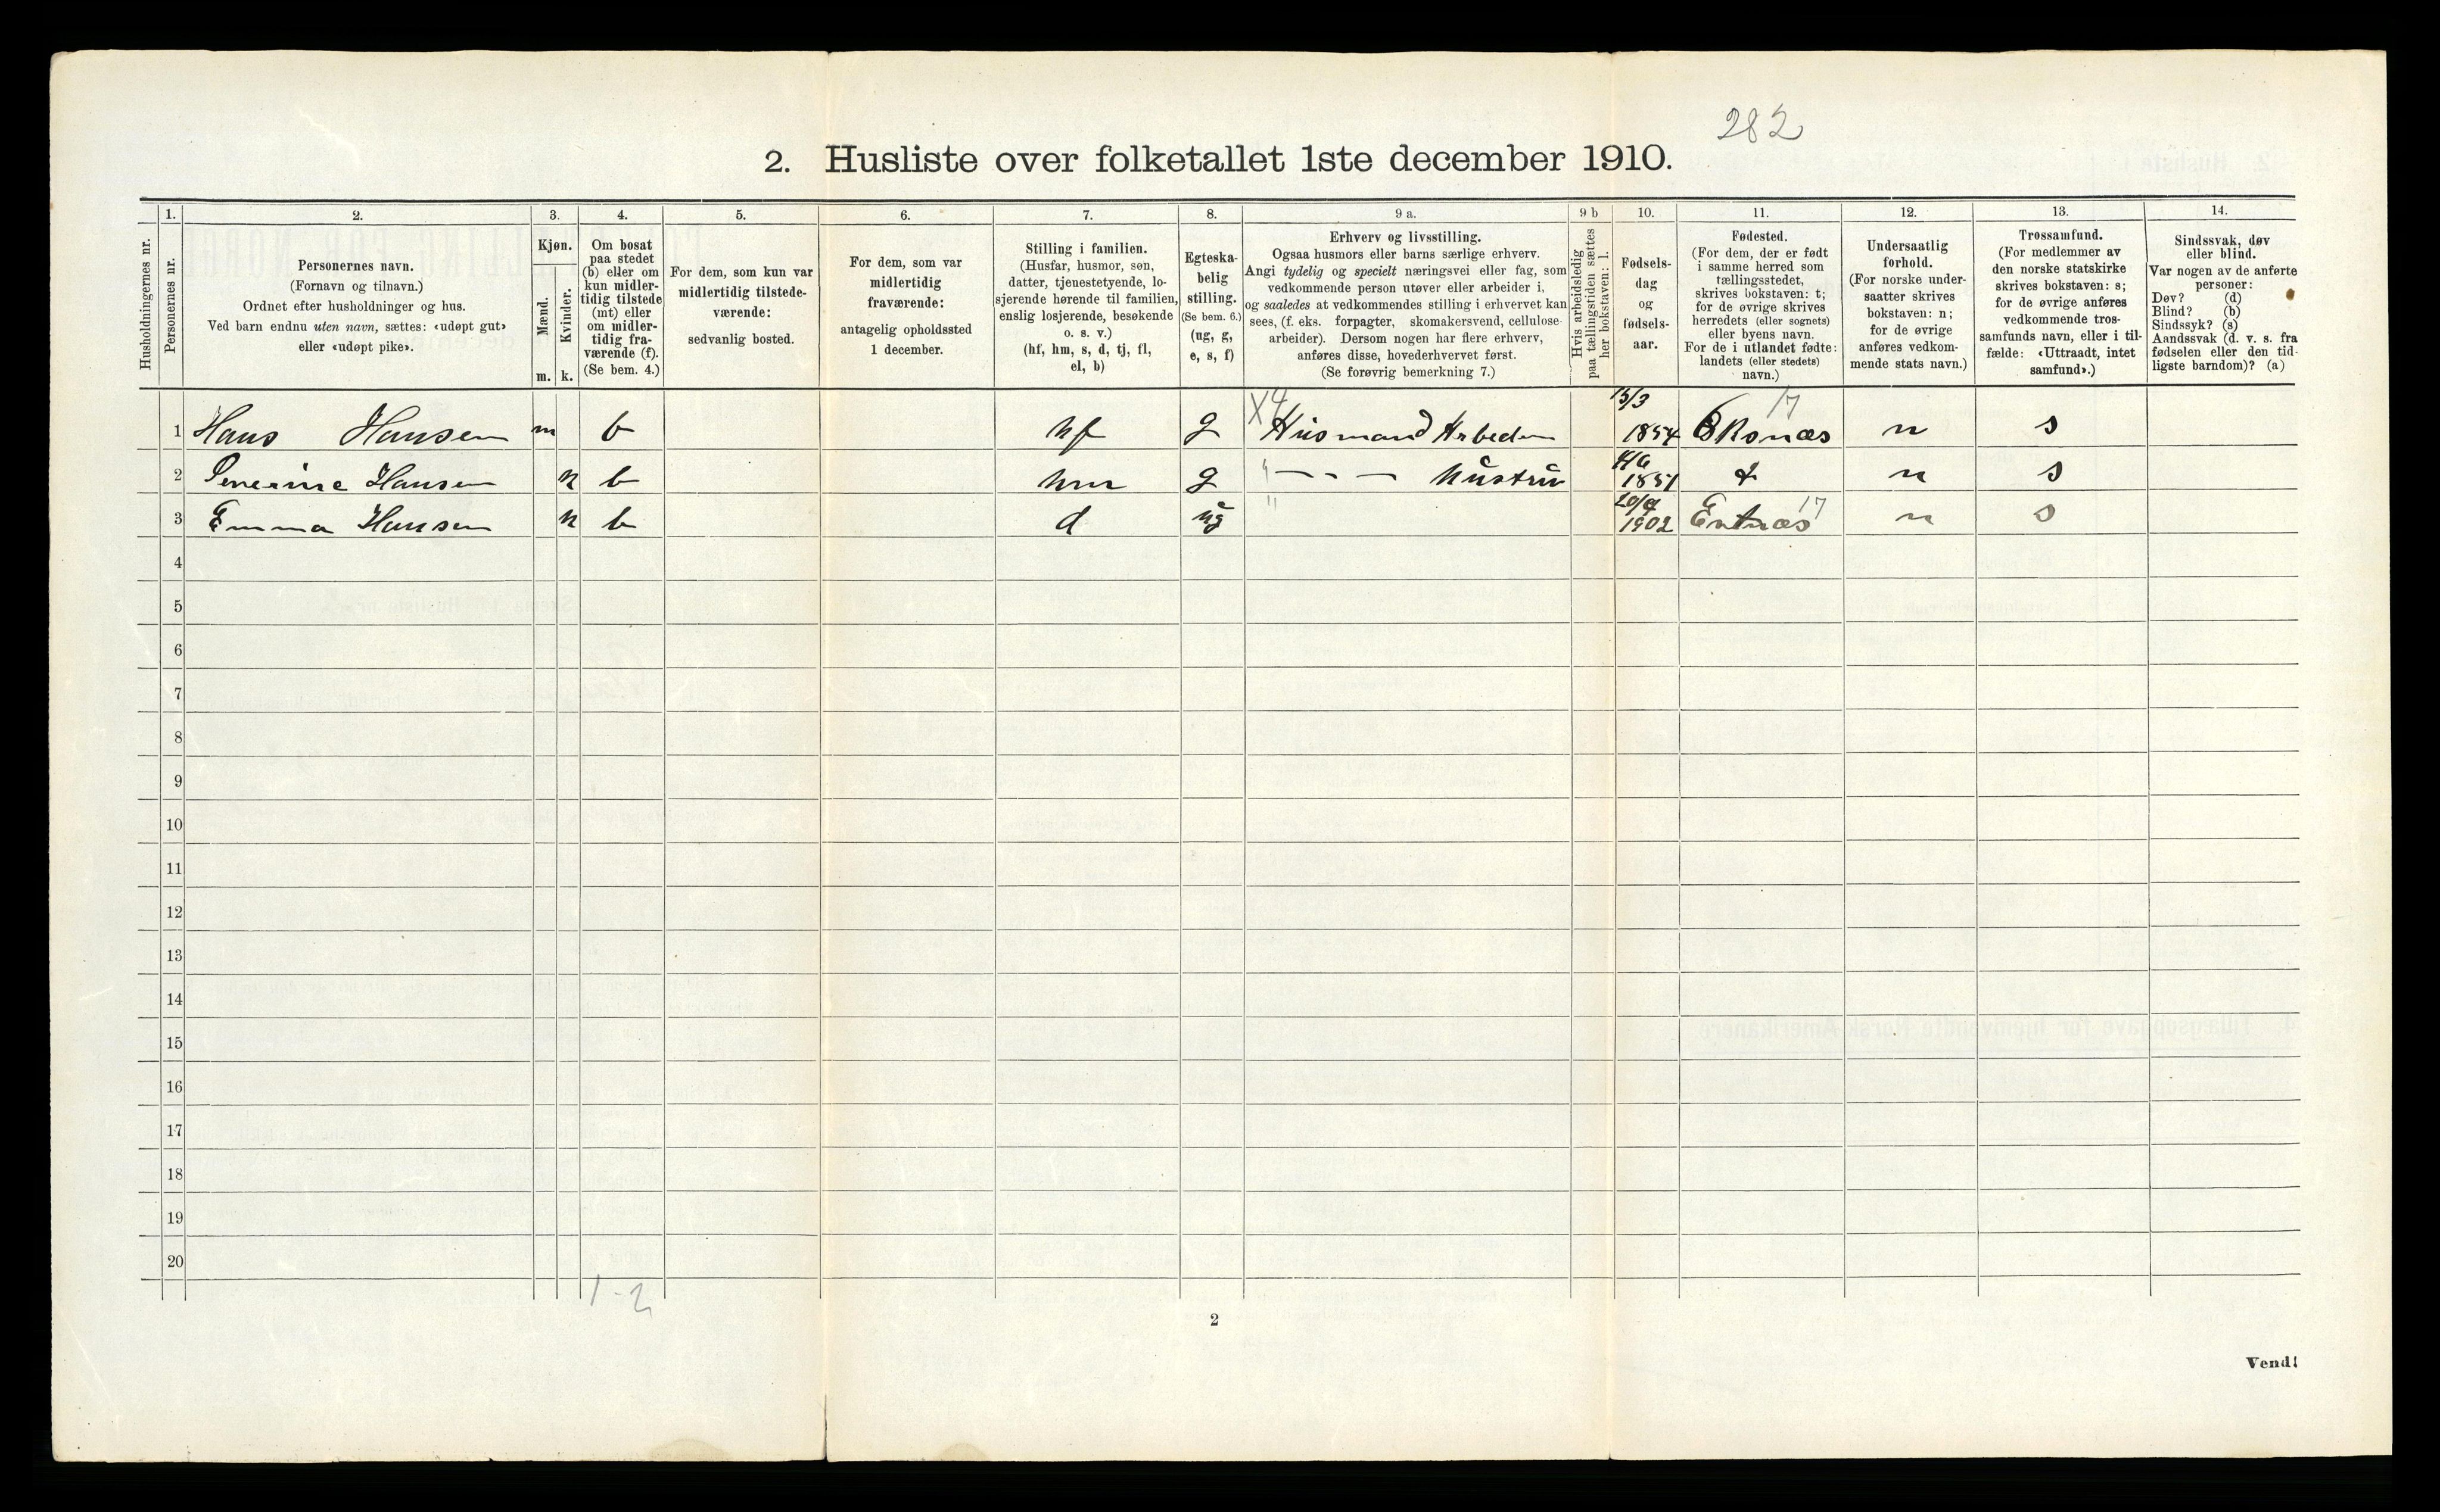 282
2. Husliste over folketallet 1ste december 1910.
Husholdningernes nr.
1.
Personernes nr.
2.
Personernes navn.
(Fornavn og tilnavn.)
Ordnet efter husholdninger og hus.
Ved barn endnu uten navn, sættes: «udøpt gut»
eller «udøpt pike».
3.
Kjøn.
Mænd.
Kvinder.
m. k.
4.
Om bosat
paa stedet
(b) eller om
kun midler-
tidig tilstede
(mt) eller
om midler-
tidig fra-
værende (f).
(Se bem. 4.)
5.
For dem, som kun var
midlertidig tilstede-
værende:
sedvanlig bosted.
6.
For dem, som var
midlertidig
fraværende:
antagelig opholdssted
1 december.
7.
Stilling i familien.
(Husfar, husmor, søn,
datter, tjenestetyende, lo-
sjerende hørende til familien,
enslig losjerende, besøkende
o. s. v.)
(hf, hm, s, d, tj, fl,
el, b)
8.
Egteska-
belig
stilling.
(Se bem. 6.)
(ug, g,
e, s, f)
9 a.
Erhverv og livsstilling.
Ogsaa husmors eller barns særlige erhverv.
Angi tydelig og specielt næringsvei eller fag, som
vedkommende person utøver eller arbeider i,
og saaledes at vedkommendes stilling i erhvervet kan
sees, (f. eks. forpagter, skomakersvend, cellulose-
arbeider). Dersom nogen har flere erhverv,
anføres disse, hovederhvervet først.
(Se forøvrig bemerkning 7.)
9 b
Hvis arbeidsledig
paa tællingstiden sættes
her bokstaven: l.
10.
Fødsels-
dag
og
fødsels-
aar.
11.
Fødested.
(For dem, der er født
i samme herred som
tællingsstedet,
skrives bokstaven: t;
for de øvrige skrives
herredets (eller sognets)
eller byens navn.
For de i utlandet fødte:
landets (eller stedets)
navn.)
12.
Undersaatlig
forhold.
(For norske under-
saatter skrives
bokstaven: n;
for de øvrige
anføres vedkom-
mende stats navn.)
13.
Trossamfund.
(For medlemmer av
den norske statskirke
skrives bokstaven: s;
for de øvrige anføres
vedkommende tros-
samfunds navn, eller i til-
fælde: «Uttraadt, intet
samfund».)
14.
Sindssvak, døv
eller blind.
Var nogen av de anførte
personer:
Døv? (d)
Blind? (b)
Sindssyk? (s)
Aandssvak (d. v. s. fra
fødselen eller den tid-
ligste barndom)? (a)
1 Hans Hansen m b hf g X4 Husmand Arbeder 15/3 1854 17 n s
2 Severine Hansen k b hm g " — - — hustru 1851 n s
3 Emma Hansen k b d ug " 20/9 1902 17 n s
4
5
6
7
8
9
10
11
12
13
14
15
16
17
18
19
20
1-2
2
Vend!